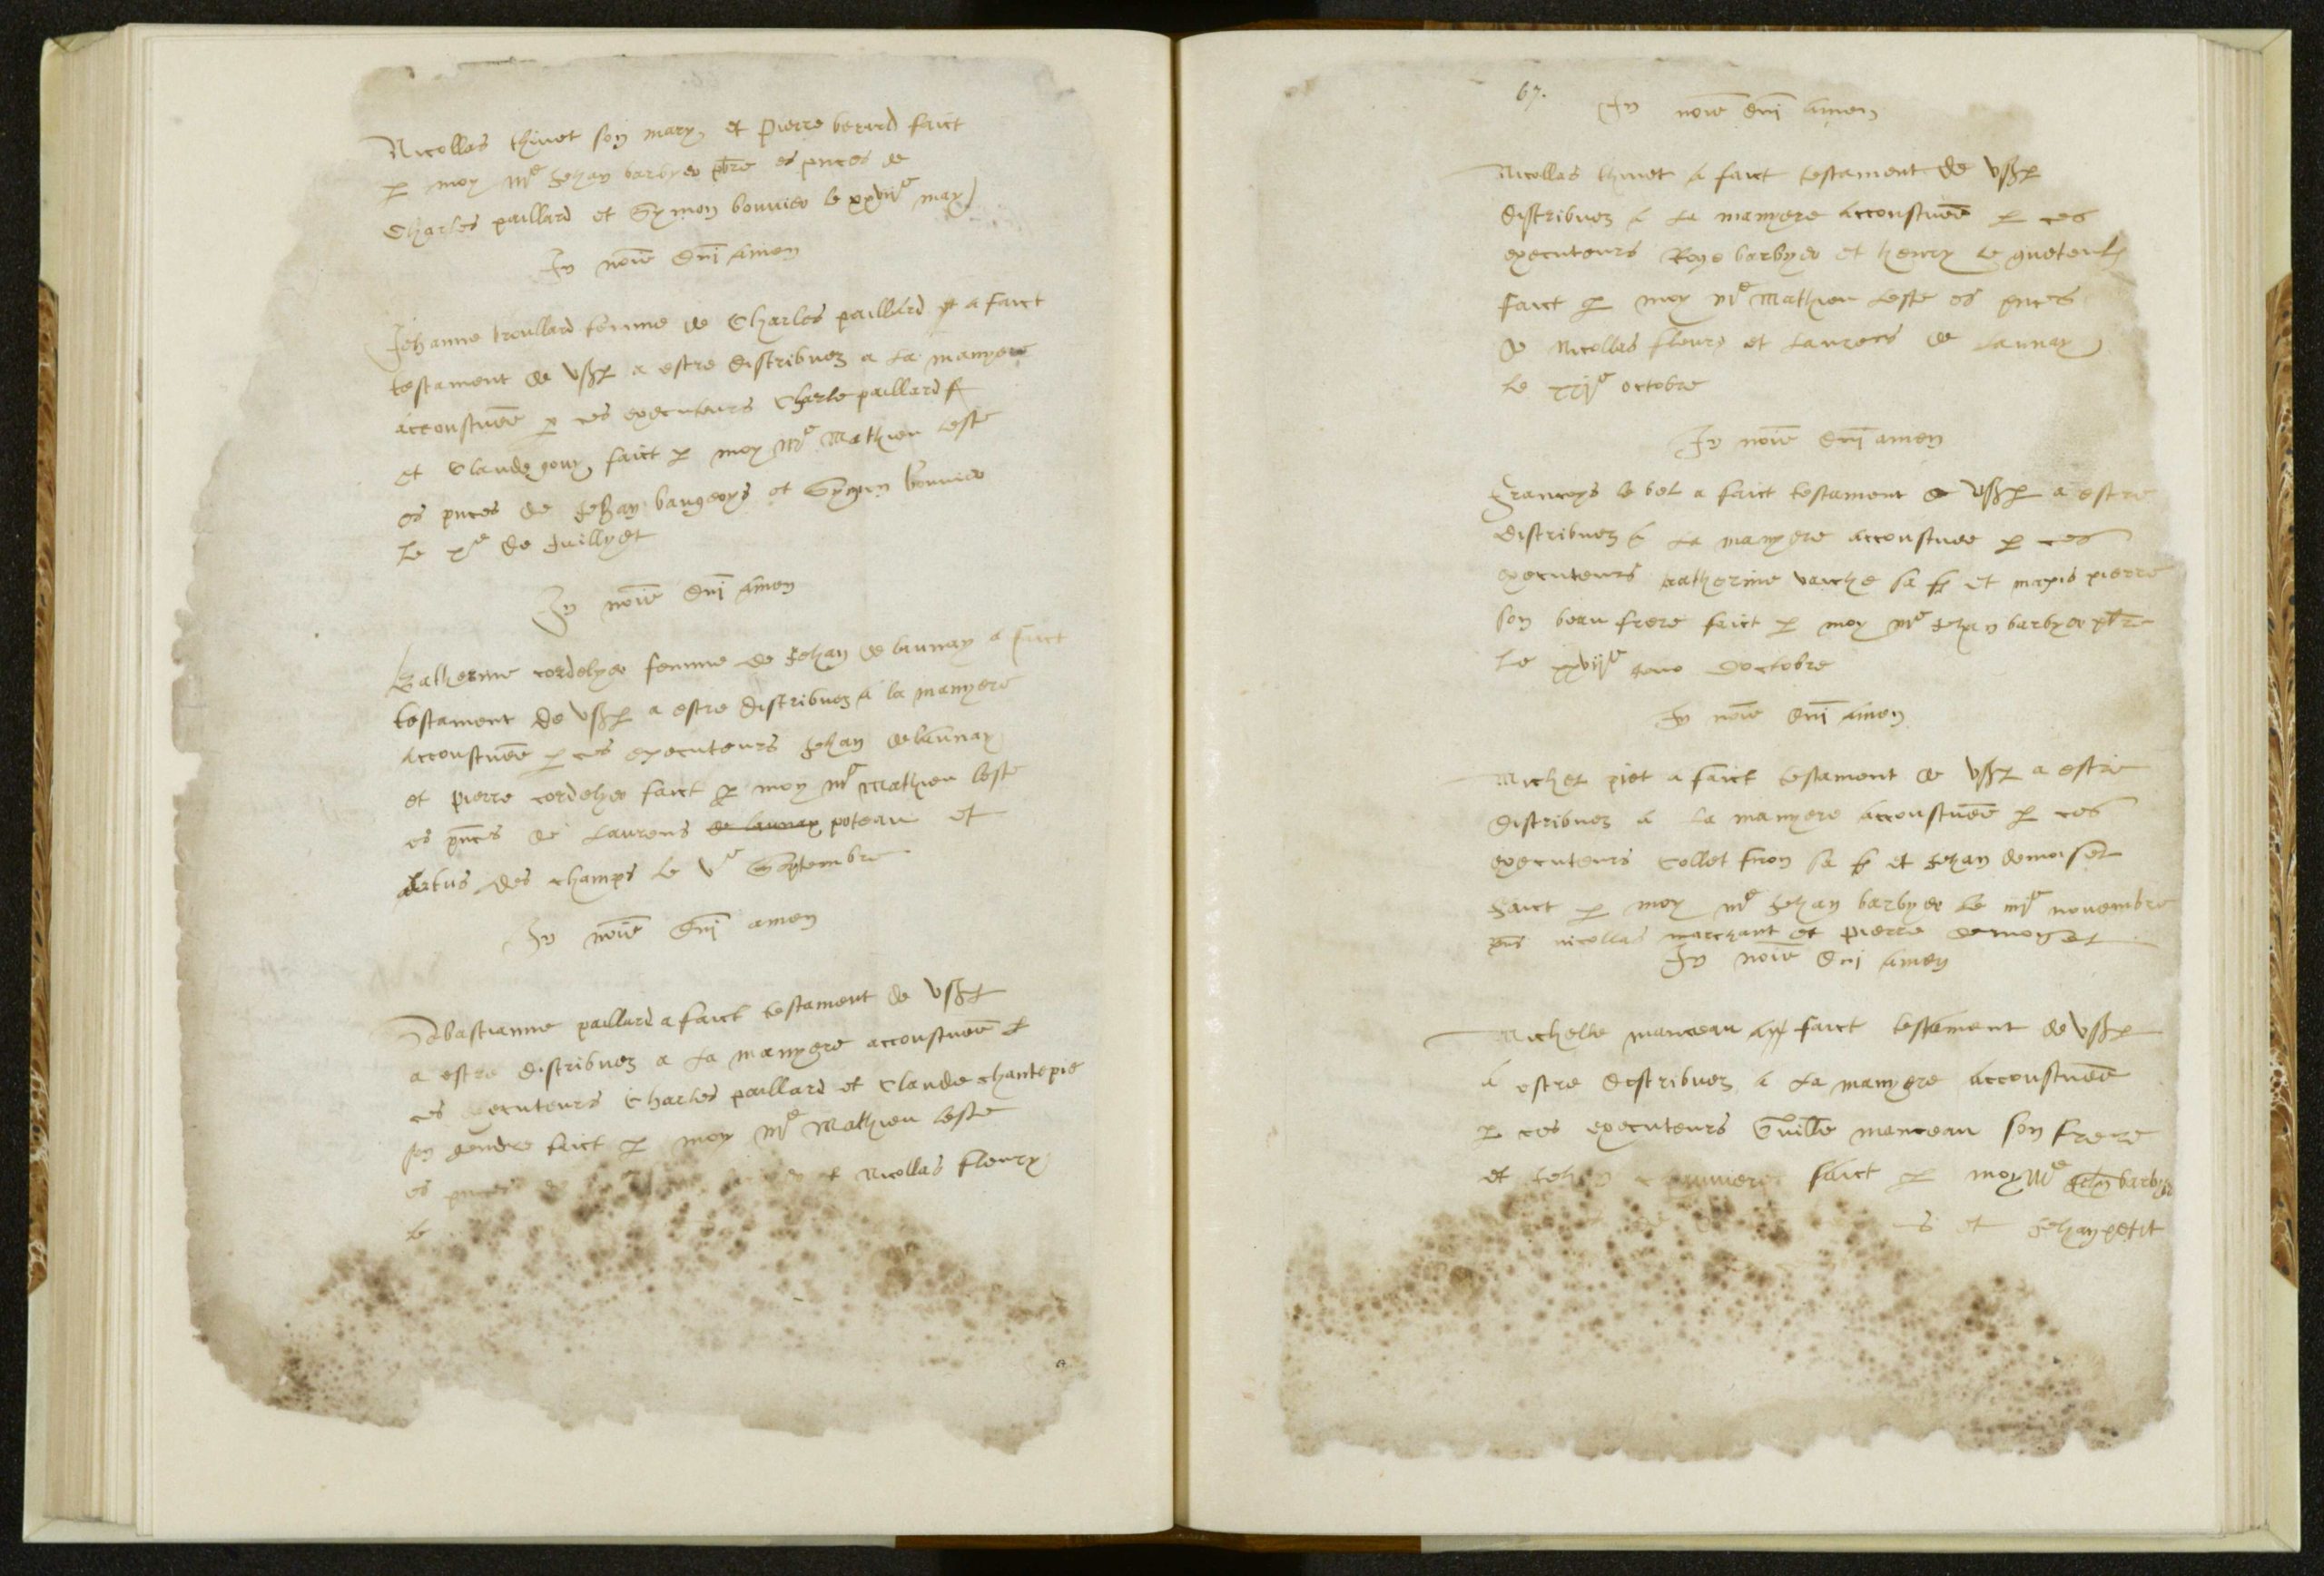 Nicollas thinet son mary et Pierre berard faict
p moy Mᵉ Jehan barbyer pbre es pnces de
Charles paillard et Symon bouvier le xxviiᵉ may
In noīe Dnī amen
Jehanne troullard femme de Charles paillard a faict
testament de vβp a estre distribuez a la manyere
accoustuée p ces executeurs Charle paillard
et Claude gouy faict p moy Mᵉ Mathieu leste
es pnces de Jehan baugeoys et Symon bouvier
le xᵉ de Juillyet
In noīe Dnī amen
Katherine cordelyer femme de Jehan de launay a faict
testament de vβp a estre distribuez a la manyere
accoustuée p ces executeurs Jehan delaunay
et pierre cordelyer faict p moy Mᵉ Mathieu leste
es pnces de Laurens de launay poteau et
des champs le vᵉ Septembre
In noīe Dnī amen
Sebastianne paillard a faict testament de vβp
a estre distribuez a la manyere accoustuée p
ces executeurs Charles paillard et Claude chantepie
son gendre faict p moy Mᵉ Mathieu leste
es pnces de et Nicollas fleury
le
67.
In noīe Dnī amen
Nicollas thinet a faict testament de vβp
distribuez a la manyere accoustuée p ces
executeurs barbyer et henry le
faict p moy Mᵉ Mathieu leste es pnces
de Nicollas fleury et Laurens de launay
le octobre
In noīe Dnī amen
Francoys le bel a faict testament de vβp a estre
distribuez a la manyere accoustuee p ces
executeurs katherine vaiche sa f et pierre
son beau frere faict p moy Mᵉ Jehan barbyer pbre
le xxviiᵉ doctobre
In noīe Dnī amen
Michel piet a faict testament de vβp a estre
distribuez a la manyere accoustuée p ces
executeurs Collet sa f et Jehan demoiset
faict p moy Mᵉ Jehan barbyer le iiiᵉ novembre
pns nicollas marchant et pierre demoyset
In noīe Dni amen
Michelle manceau a faict testament de vβp
a estre destribuez a la manyere accoustuée
p ces executeurs Guille manceau son frere
et faict p moy Mᵉ Jehan barbyer
et Jehan petit